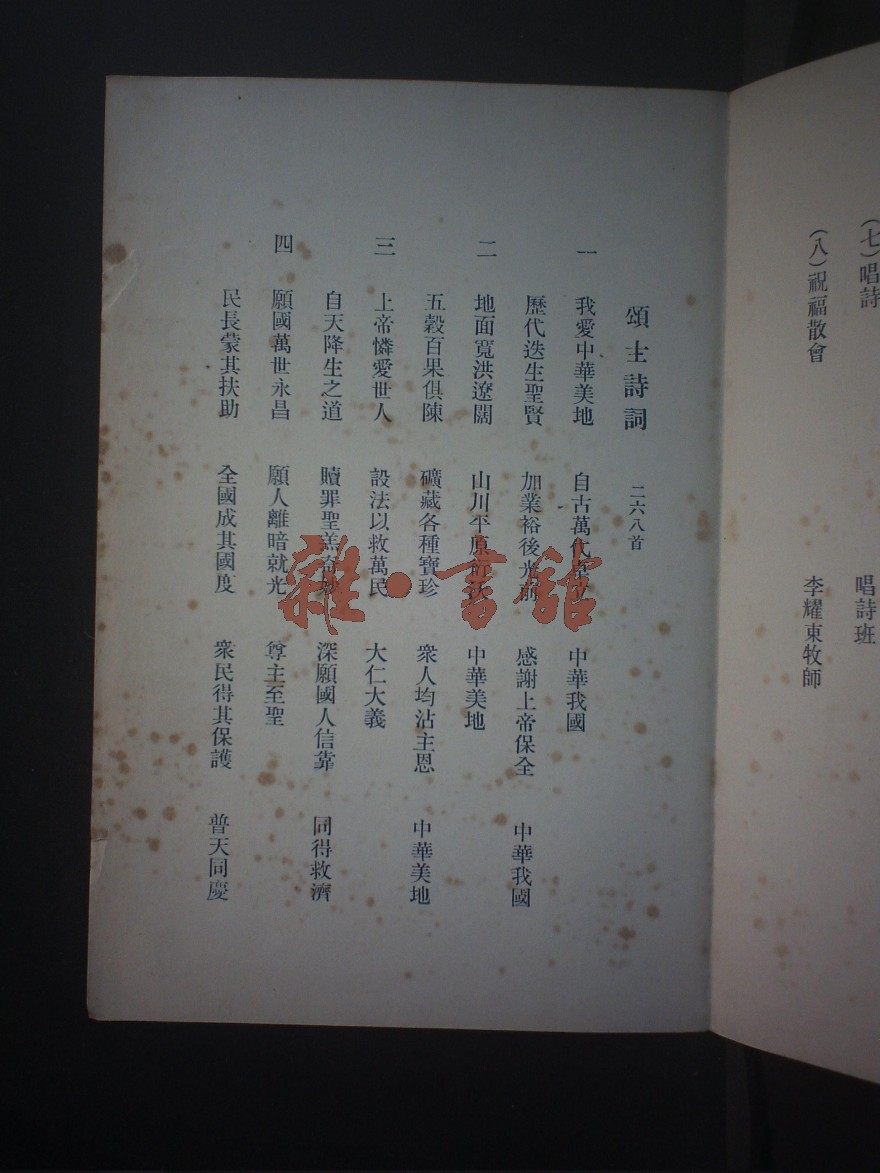 (七)唱詩 唱詩班
(八)祝福散會 李耀東牧師
頌主詩詞 二六八首
一 我愛中華美地 自古萬代 中華我國
歷代迭生聖賢 加業裕後光前 感謝上帝保全 中華我國
二 地面寬洪遼闊 山川平原 中華美地
五穀百果俱陳 礦藏各種寶珍 衆人均沾主恩 中華美地
三 上帝憐愛世人 設法以救萬民 大仁大義
自天降生之道 贖罪聖羔奇妙 深願國人信靠 同得救濟
四 願國萬世永昌 願人離暗就光 尊主至聖
民長蒙其扶助 全國成其國度 衆民得其保護 普天同慶
雜·書館